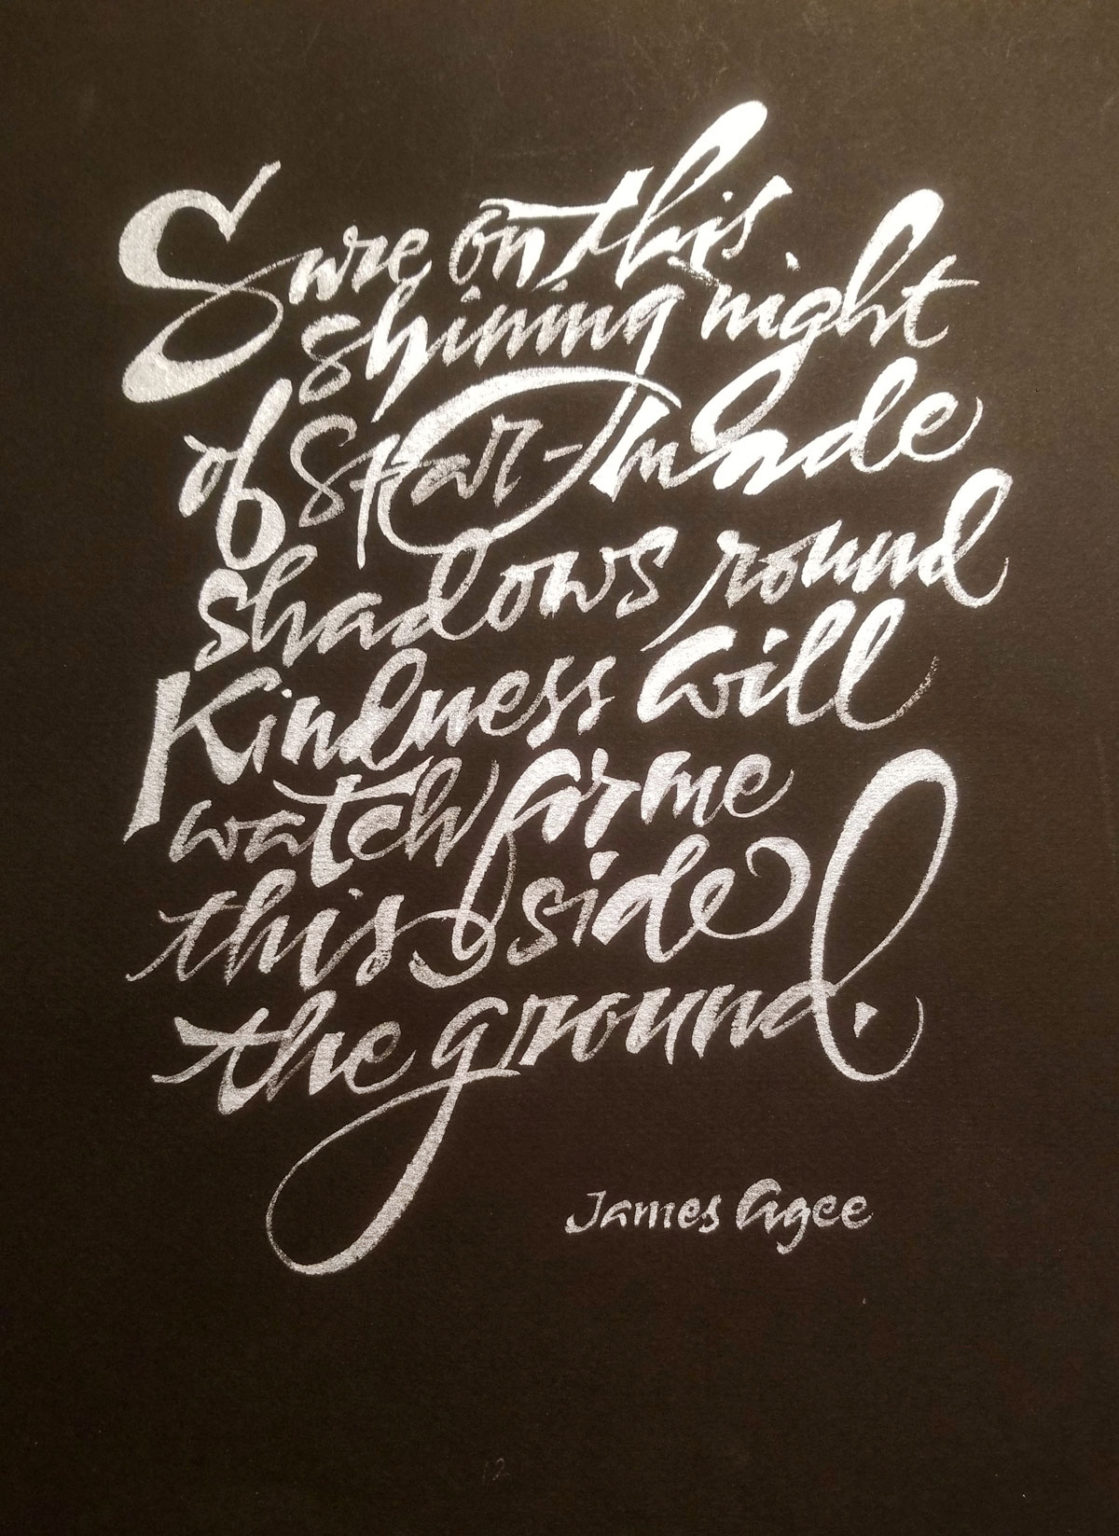 Sure on this
shining night
of star-made
shadows round
Kindness will
watch for me
this side
the ground.
James Agee
12